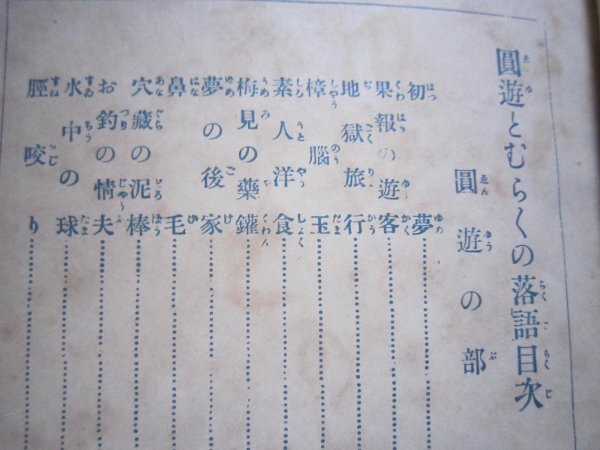 圓遊とむらくの落語目次
圓遊の部
初夢
果報の遊客
地獄旅行
樟腦玉
素人洋食
梅見の藥鑵
夢の後家
鼻毛
穴藏の泥棒
お釣の情夫
水中の球
脛咬り